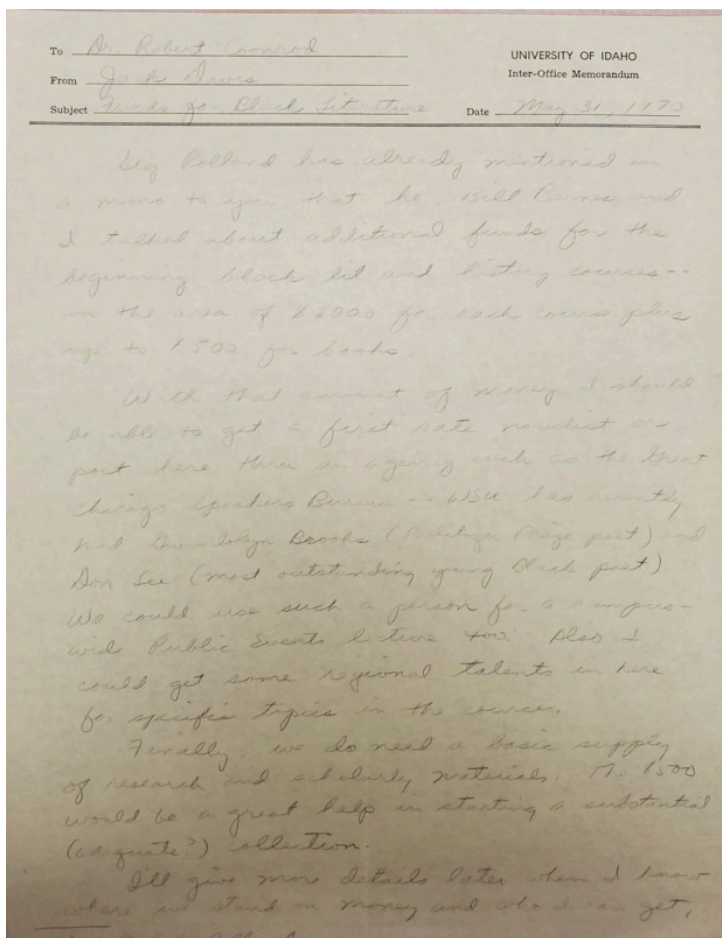 To Dr. Robert Coonrod
UNIVERSITY OF IDAHO
From Jack Davis
Inter-Office Memorandum
Subject Funds for Black Literature
Date May 31, 1972
Sig Rolland has already mentioned in
a memo to you that he, Bill Barnes, and
I talked about additional funds for the
beginning black lit and history courses--
in the area of $2000 for each course plus
up to $500 for books.
With that amount of money I should
be able to get a first rate novelist or
poet here thru an agency such as the Great
Chicago Speakers Bureau -- WSU has recently
had Gwendolyn Brooks (Pulitzer Prize poet) and
Don Lee (most outstanding young Black poet)
We could use such a person for a campus-
wide Public Events lecture too. Also I
could get some regional talents in here
for specific topics in the courses.
Finally, we do need a basic supply
of research and scholarly materials. The $500
would be a great help in starting a substantial
(adequate?) collection.
I'll give more details later when I know
where we stand on money and who I can get,